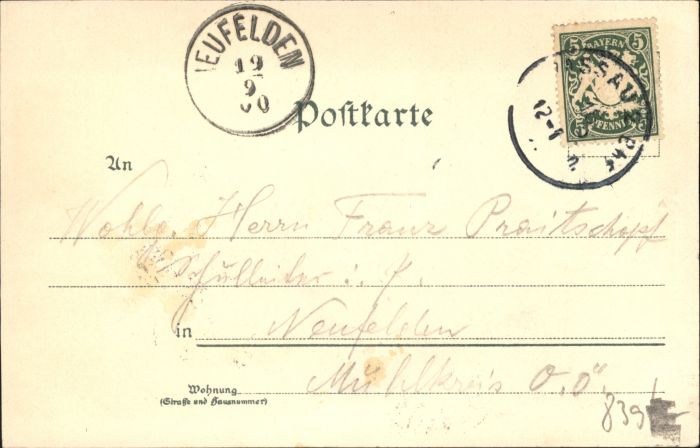 NEUFELDEN
19
9
00
5 BAYERN 5
5 PFENNIG 5
PASSAU 2 Bhf
12-1
Postkarte
An
Wohlg. Herrn Franz Praitschopf
Schulleiter i. P.
in Neufelden
Mühlkreis O.Ö.
Wohnung
(Straße und Hausnummer)
839